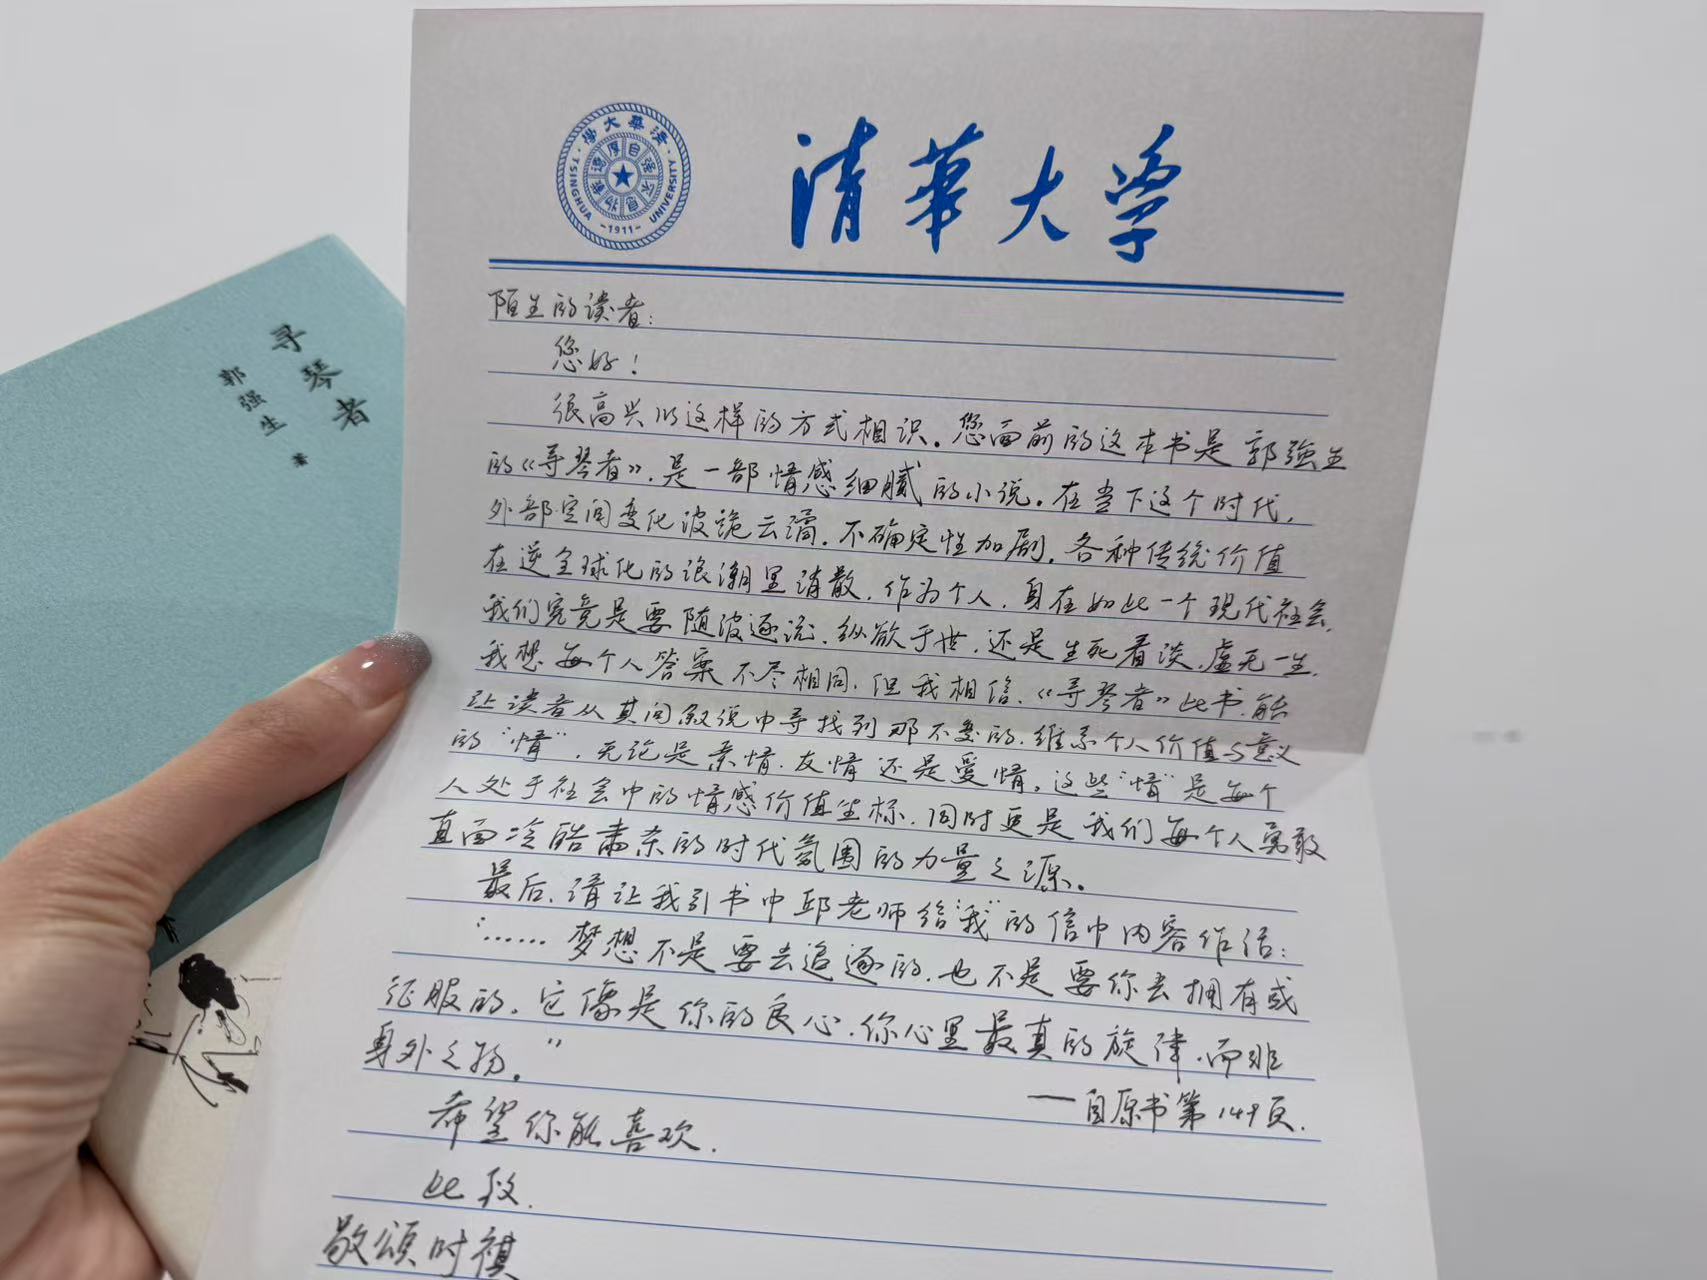 清華大学
清華大學
TSINGHUA UNIVERSITY
自强不息
厚德載物
-1911-
寻琴者
郭强生 著
陌生的读者:
您好!
很高兴以这样的方式相识。您面前的这本书是郭强生
的《寻琴者》,是一部情感细腻的小说。在当下这个时代,
外部空间变化波诡云谲,不确定性加剧,各种传统价值
在逆全球化的浪潮里消散,作为个人,身在如此一个现代社会,
我们究竟是要随波逐流、纵欲于世,还是生死看淡、虚无一生,
我想每个人答案不尽相同,但我相信,《寻琴者》此书,能
让读者从其间叙说中寻找到那不变的,维系个人价值与意义
的“情”,无论是亲情、友情还是爱情。这些“情”是每个
人处于社会中的情感价值坐标,同时更是我们每个人勇敢
直面冷酷肃杀的时代氛围的力量之源。
最后,请让我引书中邱老师给“我”的信中内容作结:
“……梦想不是要去追逐的,也不是要你去拥有或
征服的。它像是你的良心,你心里最真的旋律,而非
身外之物。”
——自原书第149页.
希望你能喜欢.
此致.
敬颂时祺